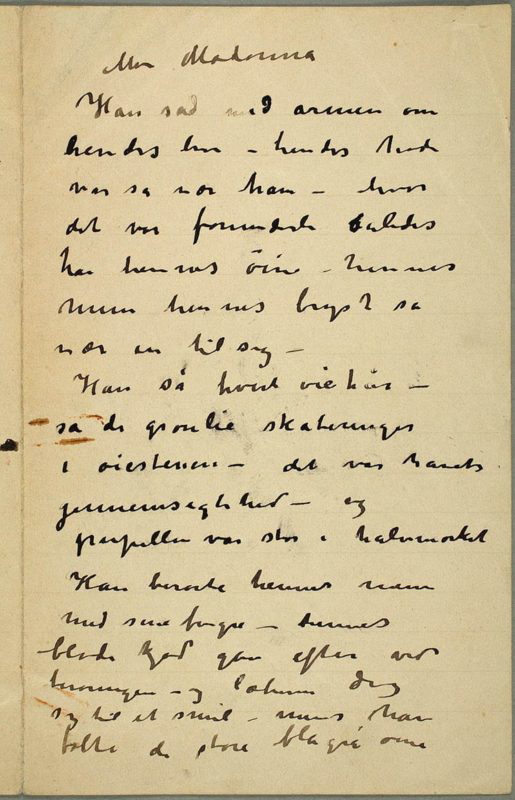 Min Madonna
Han sad med armen om
hendes liv – hendes hode
var så nær ham – hvor
det var forunderlig således
ha hennes öine – hennes
mun hennes bryst så
nær in til sig –
Han så hvert viehår –
så de grønlie skateringer
i öiestenen – det var havets
jennemsigtihed – og
pupillen var stor i halvmørket
Han berørte hennes mun
med sine fingre – hennes
bløde kjød gav efter ved
berøringen – og læberne drog
sig til et smil – mens han
følte de store blågrå øine